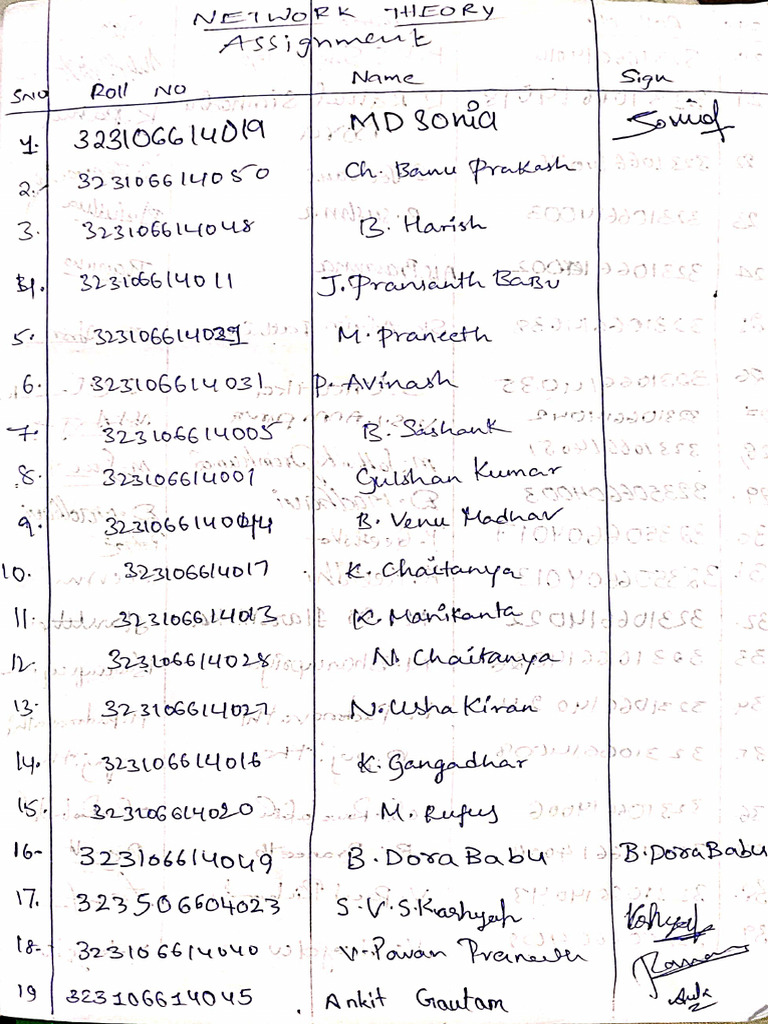 NETWORK THEORY
Assignment
SNO Roll NO Name Sign
1. 323106614019 MD Sonia Sonia
2. 323106614050 Ch. Banu Prakash
3. 323106614048 B. Harish
4. 323106614011 J. Pransanth Babu
5. 323106614039 M. Praneeth
6. 323106614031 P. Avinash
7. 323106614005 B. Sashank
8. 323106614001 Gulshan Kumar
9. 323106614044 B. Venu Madhav
10. 323106614017 K. Chaitanya
11. 323106614013 K. Manikanta
12. 323106614028 N. Chaitanya
13. 323106614027 N. Usha Kiran
14. 323106614016 K. Gangadhar
15. 323106614020 M. Rufus
16- 323106614049 B. Dora Babu B. Dora Babu
17. 323506604023 S.V.S. Kashyap Kashyap
18- 323106614040 V. Pavan Praneeth
19 323106614045 Ankit Gautam